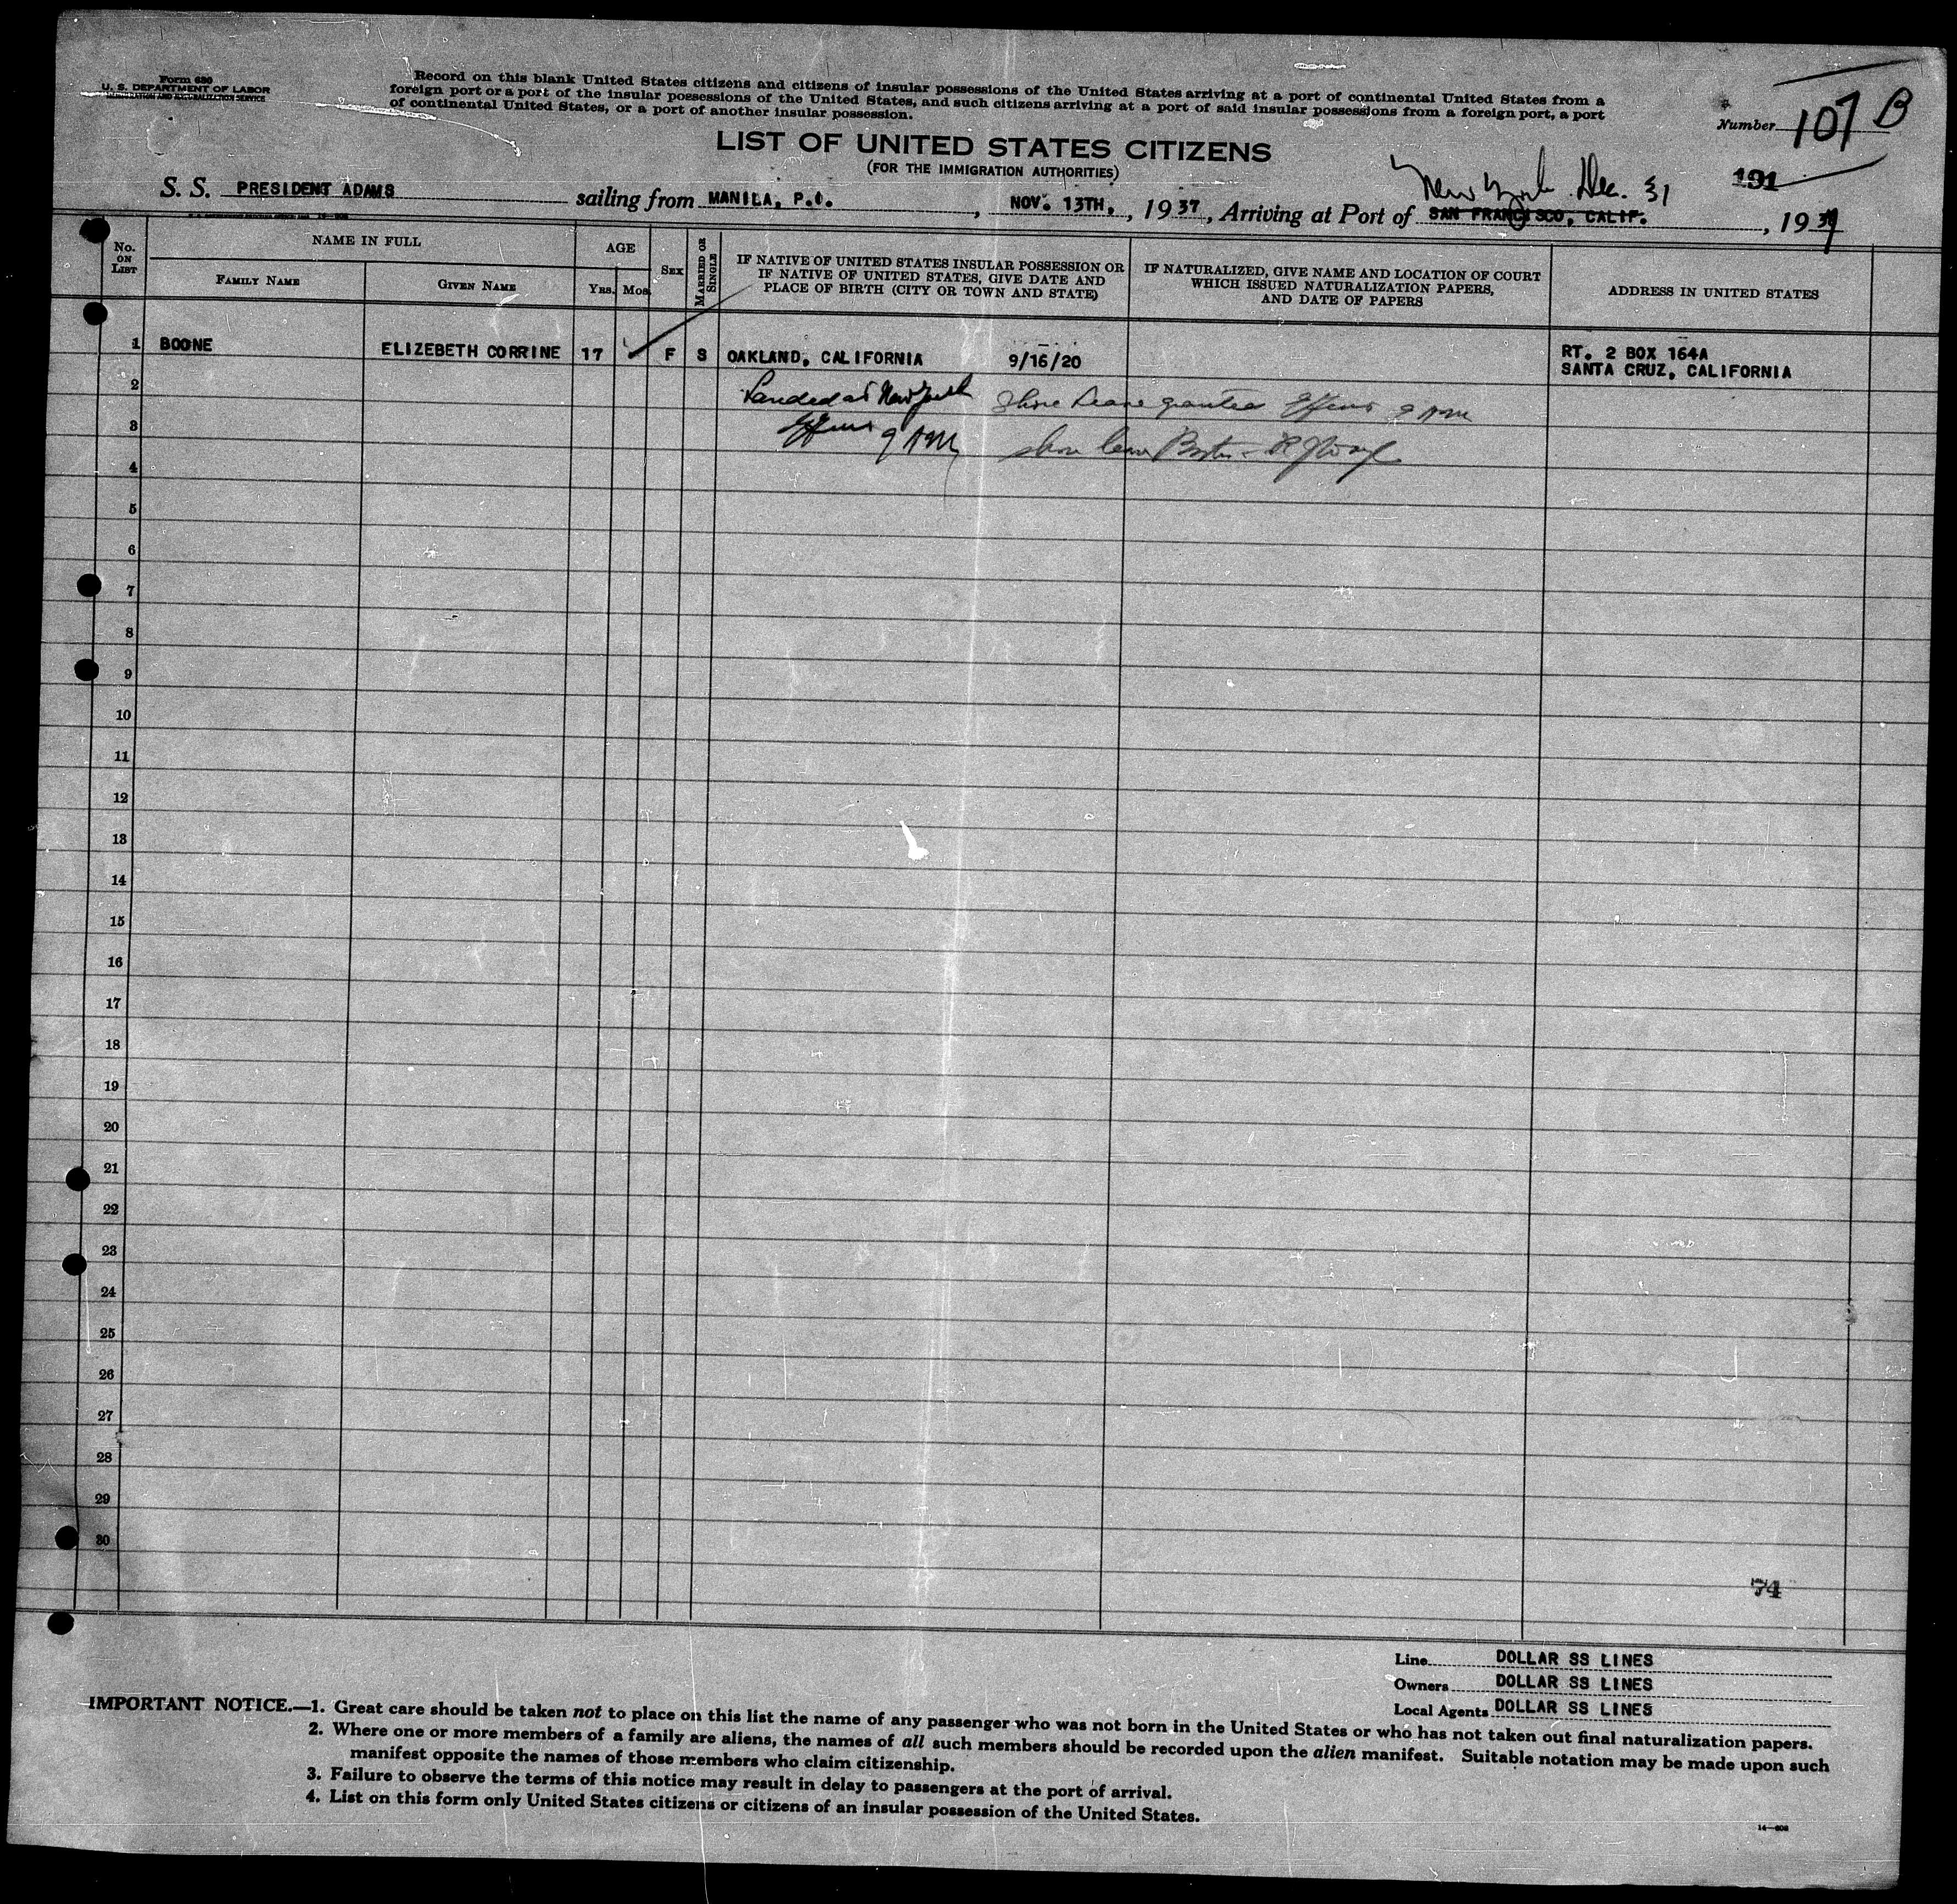 Form 630
U. S. DEPARTMENT OF LABOR
IMMIGRATION AND NATURALIZATION SERVICE
Record on this blank United States citizens and citizens of insular possessions of the United States arriving at a port of continental United States from a
foreign port or a port of the insular possessions of the United States, and such citizens arriving at a port of said insular possessions from a foreign port, a port
of continental United States, or a port of another insular possession.
Number 107 B
LIST OF UNITED STATES CITIZENS
(FOR THE IMMIGRATION AUTHORITIES)
191
New York Dec. 31
S. S. PRESIDENT ADAMS sailing from MANILA, P.I., NOV. 13TH, , 1937, Arriving at Port of SAN FRANCISCO, CALIF. , 1937
No. ON LIST
NAME IN FULL
FAMILY NAME
GIVEN NAME
AGE
YRS. MOS.
SEX
MARRIED OR SINGLE
IF NATIVE OF UNITED STATES INSULAR POSSESSION OR
IF NATIVE OF UNITED STATES, GIVE DATE AND
PLACE OF BIRTH (CITY OR TOWN AND STATE)
IF NATURALIZED, GIVE NAME AND LOCATION OF COURT
WHICH ISSUED NATURALIZATION PAPERS,
AND DATE OF PAPERS
ADDRESS IN UNITED STATES
1 BOONE ELIZEBETH CORRINE 17 F S OAKLAND, CALIFORNIA 9/16/20 RT. 2 BOX 164A
SANTA CRUZ, CALIFORNIA
2 Landed at New York Shore Leave granted 9 AM
3 9 AM shore leave Boston
4
5
6
7
8
9
10
11
12
13
14
15
16
17
18
19
20
21
22
23
24
25
26
27
28
29
30
74
Line DOLLAR SS LINES
Owners DOLLAR SS LINES
Local Agents DOLLAR SS LINES
IMPORTANT NOTICE.—1. Great care should be taken not to place on this list the name of any passenger who was not born in the United States or who has not taken out final naturalization papers.
2. Where one or more members of a family are aliens, the names of all such members should be recorded upon the alien manifest. Suitable notation may be made upon such
manifest opposite the names of those members who claim citizenship.
3. Failure to observe the terms of this notice may result in delay to passengers at the port of arrival.
4. List on this form only United States citizens or citizens of an insular possession of the United States.